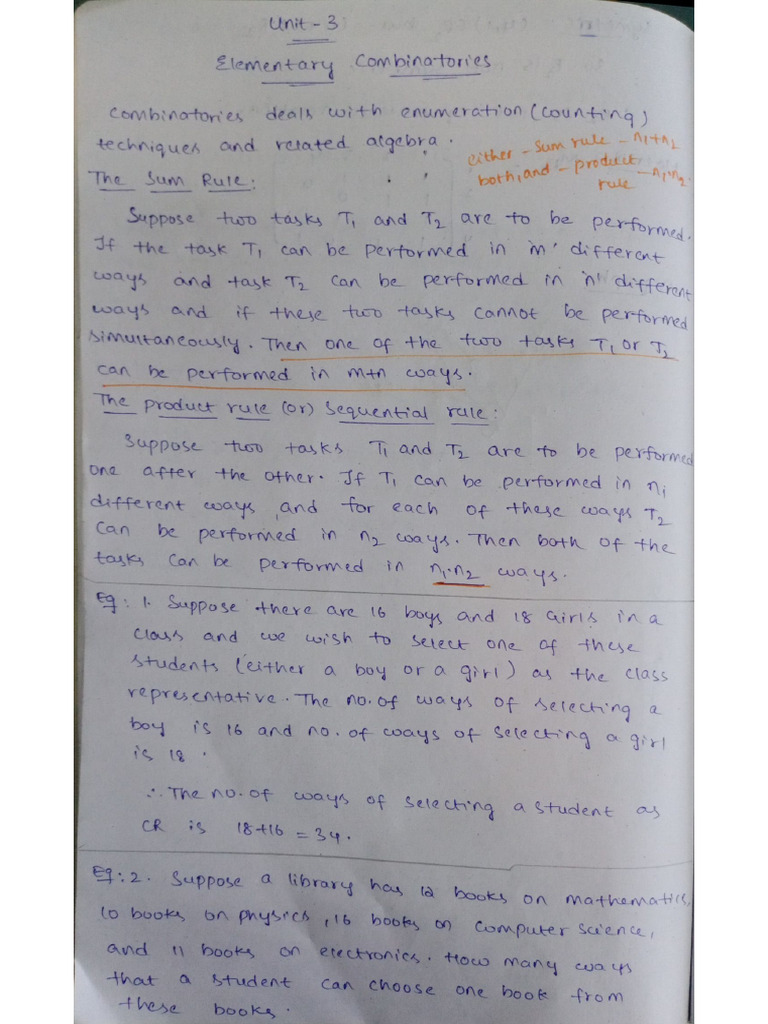 Unit-3
Elementary Combinatories
Combinatories deals with enumeration (counting)
techniques and related algebra.
either - sum rule - n1+n2
both, and - product - n1.n2.
rule
The Sum Rule:
Suppose two tasks T1 and T2 are to be performed.
If the task T1 can be performed in 'm' different
ways and task T2 can be performed in 'n' different
ways and if these two tasks cannot be performed
simultaneously. Then one of the two tasks T1 or T2
can be performed in m+n ways.
The product rule (or) Sequential rule:
Suppose two tasks T1 and T2 are to be performed
one after the other. If T1 can be performed in n1
different ways and for each of these ways T2
can be performed in n2 ways. Then both of the
tasks can be performed in n1.n2 ways.
Eg: 1. Suppose there are 16 boys and 18 Girls in a
class and we wish to select one of these
students (either a boy or a girl) as the class
representative. The no. of ways of selecting a
boy is 16 and no. of ways of selecting a girl
is 18.
∴ The no. of ways of selecting a student as
CR is 18+16 = 34.
Eg: 2. Suppose a library has 12 books on mathematics,
10 books on physics, 16 books on computer science,
and 11 books on electronics. How many ways
that a student can choose one book from
these books.